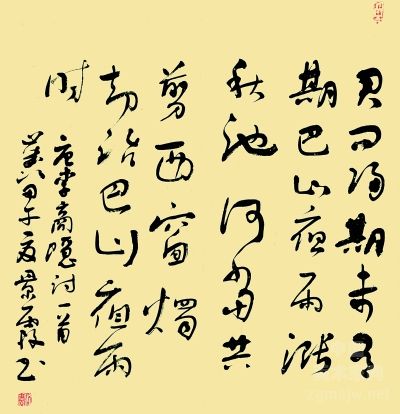 君问归期未有
期巴山夜雨涨
秋池何当共
剪西窗烛
却话巴山夜雨
时
唐李商隐诗一首
甲午夏景霞书